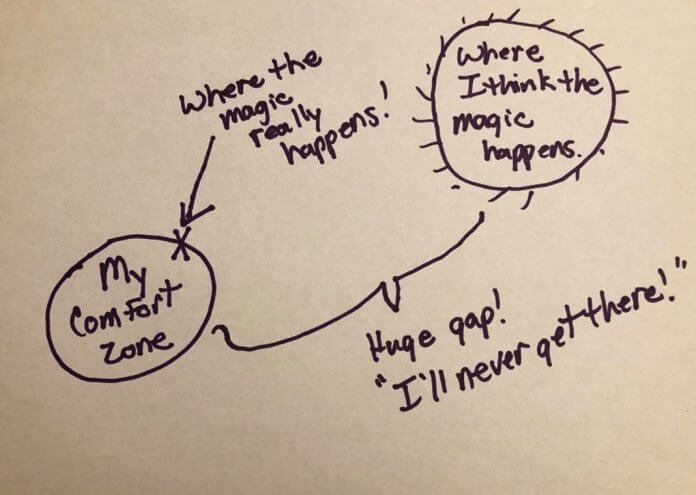 Where the
magic
really
happens!
Where
I think the
magic
happens.
My
Comfort
Zone
Huge gap!
"I'll never get there!"